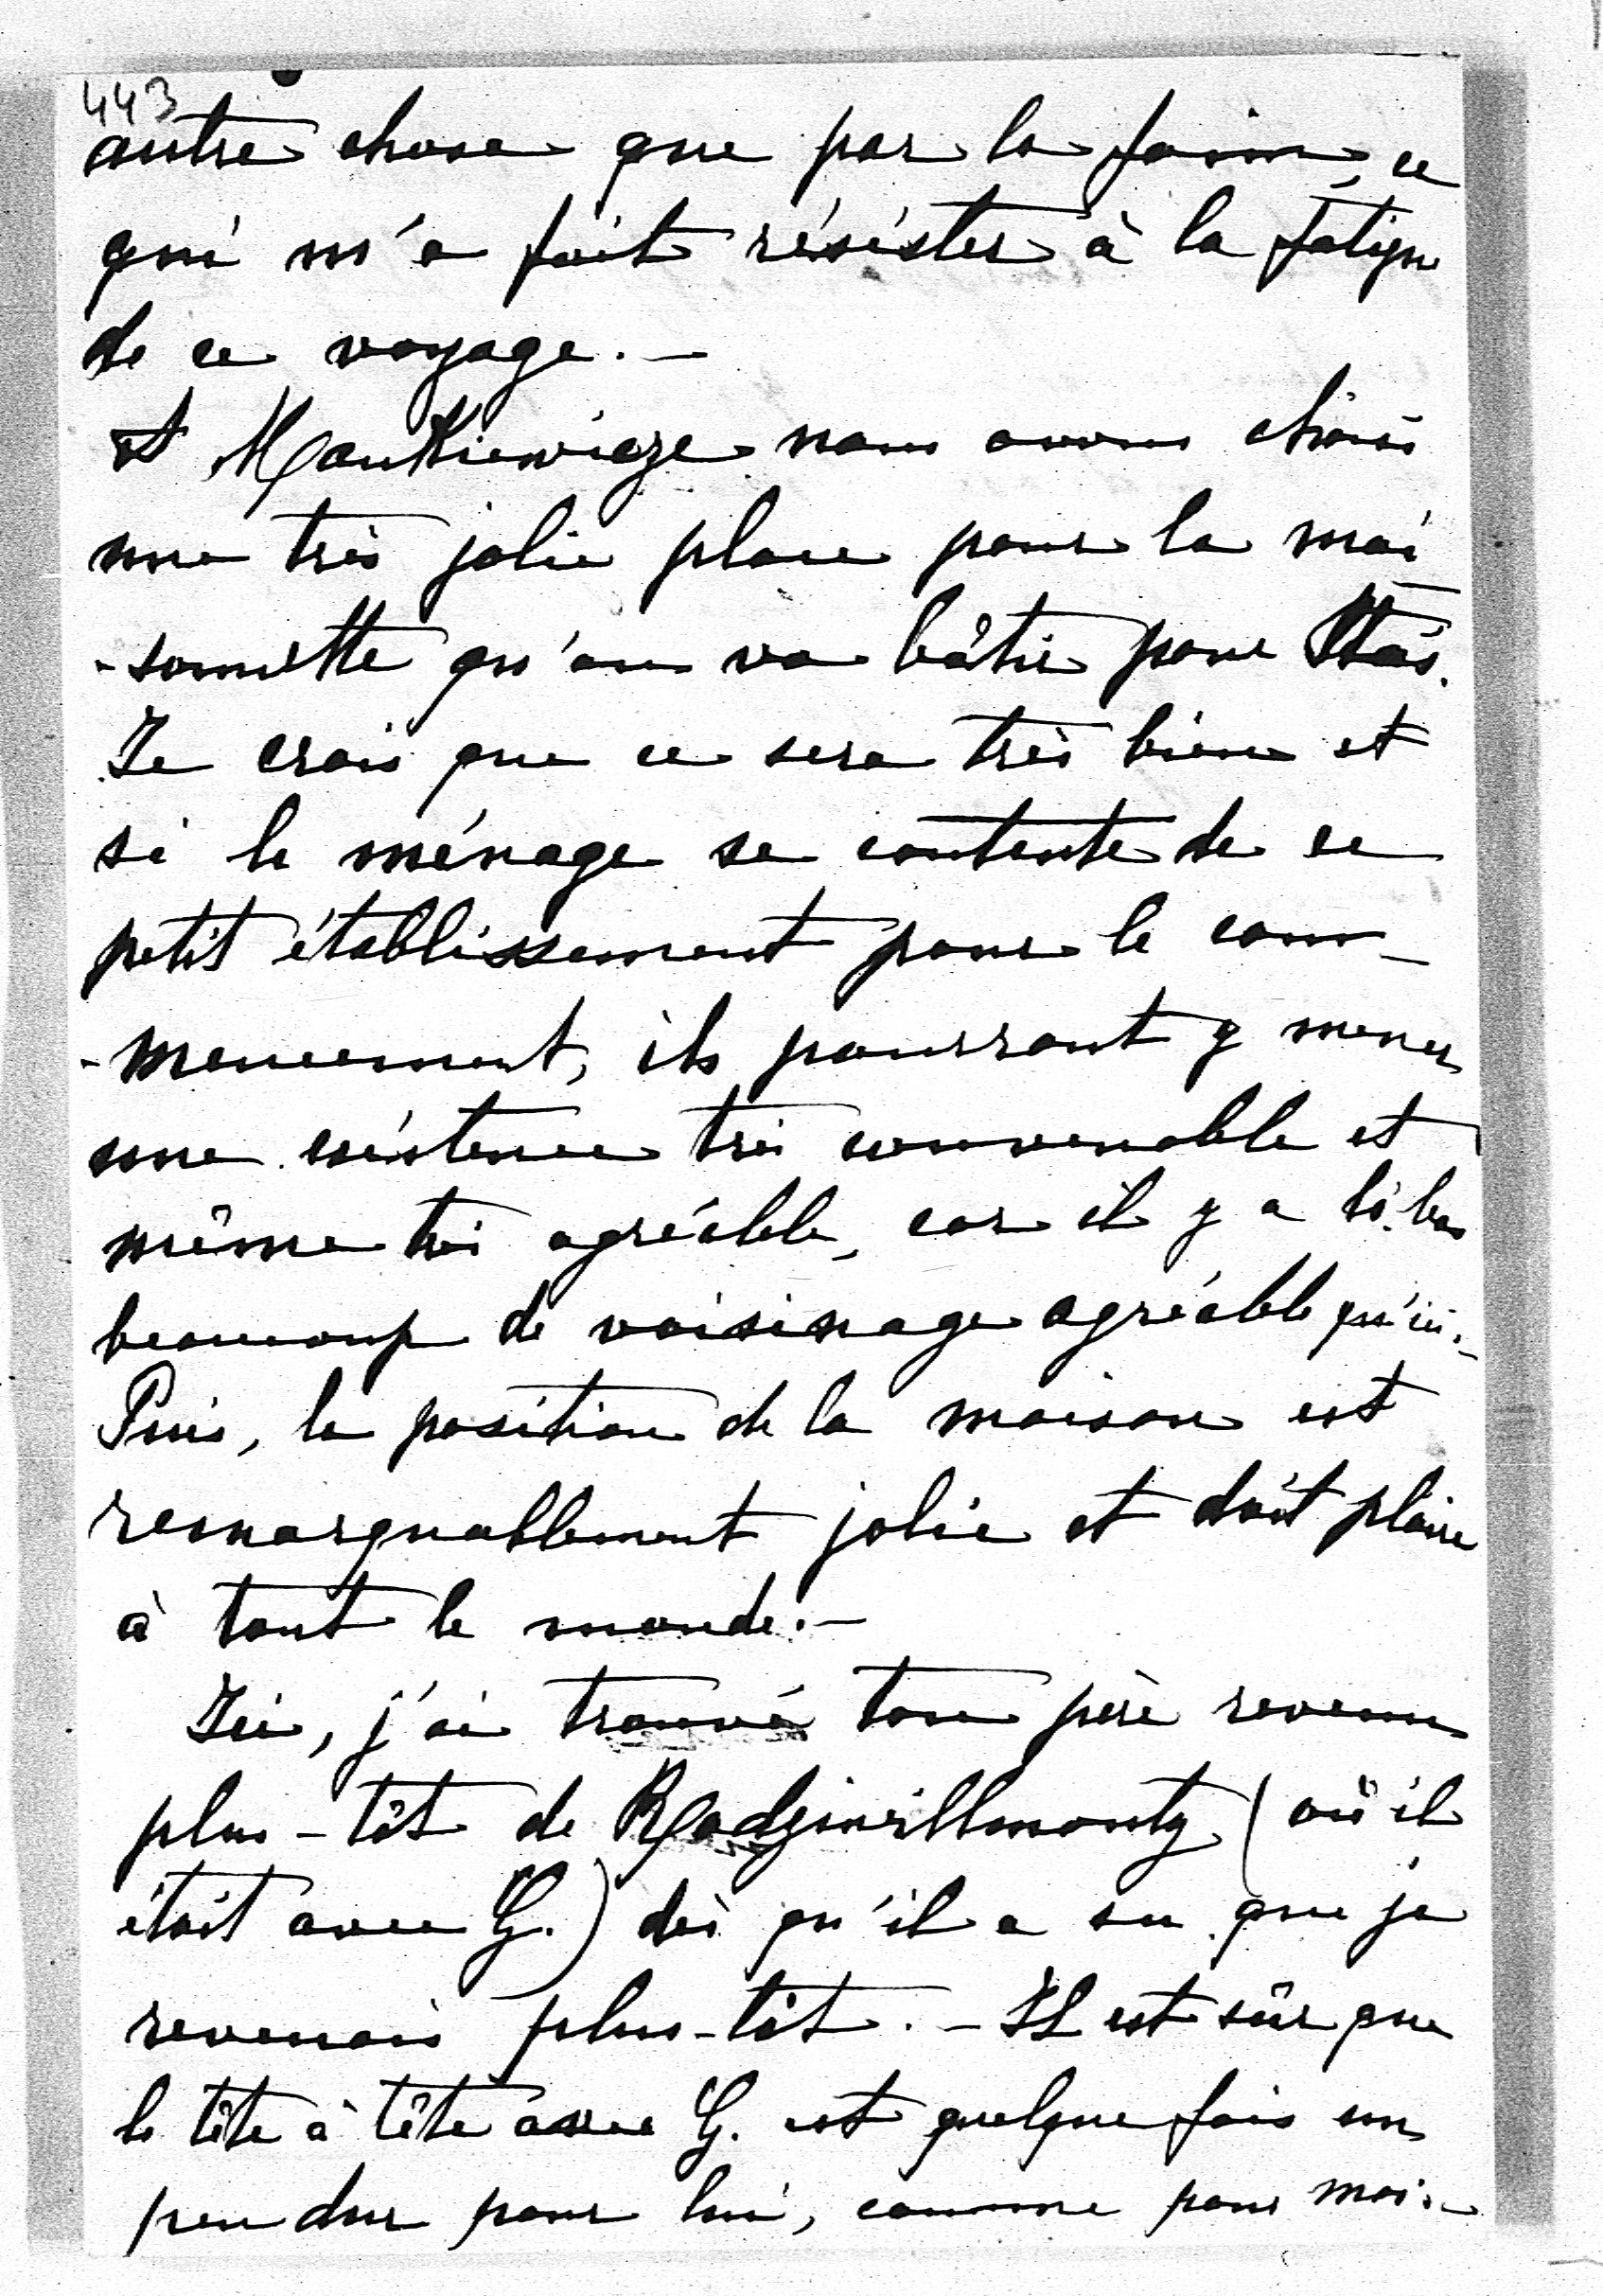 443
autre chose que par la faim, ce
qui m'a fait résister à la fatigue
de ce voyage. —
A Mankiewicze nous avons choisi
une très jolie place pour la mai
-sonnette qu'on va bâtir pour Staś.
Je crois que ce sera très bien et
si le ménage se contente de ce
petit établissement pour le com-
-mencement, ils pourront y mener
une existence très convenable et
même très agréable, car il y a là-bas
beaucoup de voisinage agréable qu'ici. _
Puis, la position de la maison est
remarquablement jolie et doit plaire
à tout le monde. —
Ici, j'ai trouvé ton père revenu
plus-tôt de Radziwillmonty (où il
était avec G.) dès qu'il a su que je
revenais plus-tôt. - Il est sûr que
le tête à tête avec G. est quelque fois un
peu dur pour lui, comme pour moi. -